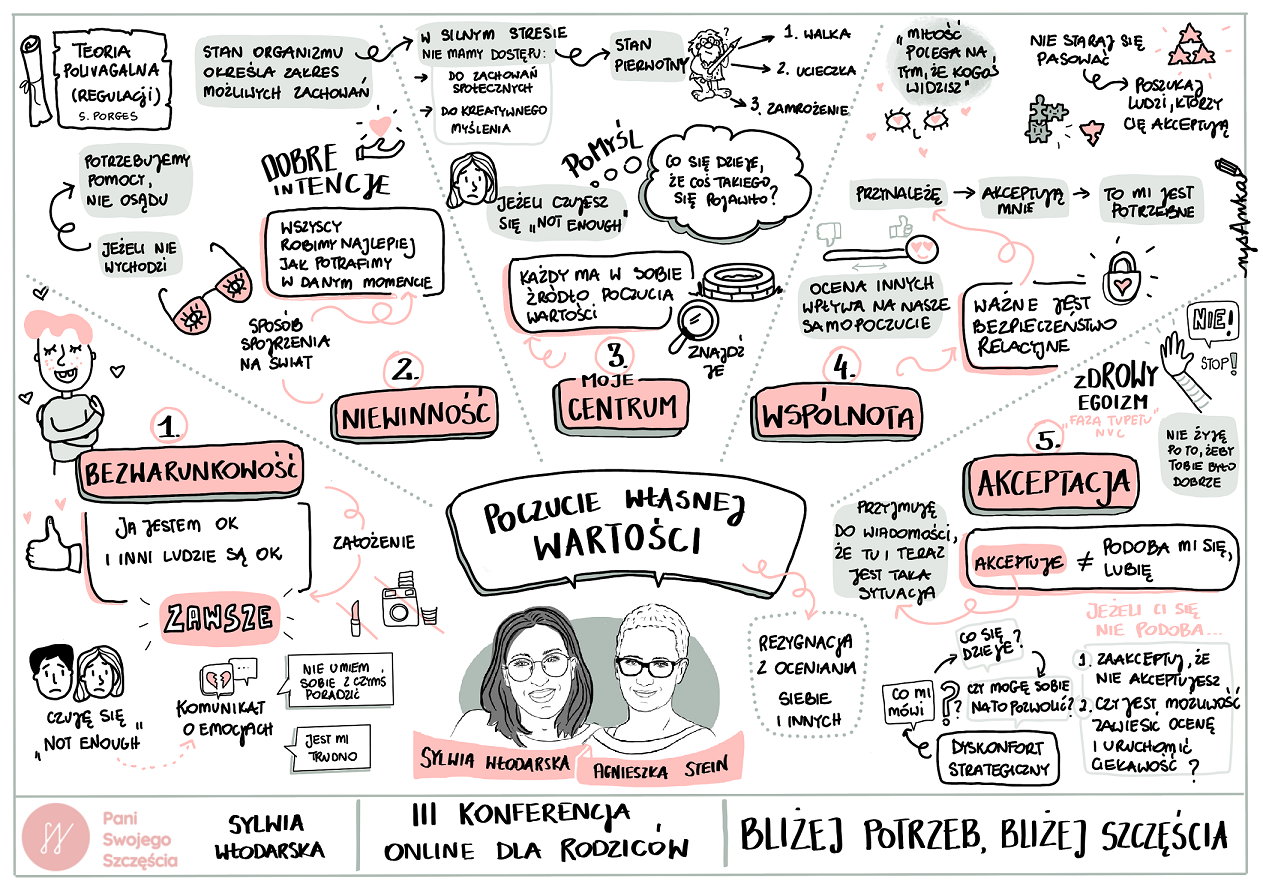 TEORIA
POLIWAGALNA
(REGULACJI)
S. PORGES
STAN ORGANIZMU
OKREŚLA ZAKRES
MOŻLIWYCH ZACHOWAŃ
W SILNYM STRESIE
NIE MAMY DOSTĘPU:
DO ZACHOWAŃ
SPOŁECZNYCH
DO KREATYWNEGO
MYŚLENIA
STAN
PIERWOTNY
1. WALKA
2. UCIECZKA
3. ZAMROŻENIE
POTRZEBUJEMY
POMOCY,
NIE OSĄDU
JEŻELI NIE
WYCHODZI
DOBRE
INTENCJE
WSZYSCY
ROBIMY NAJLEPIEJ
JAK POTRAFIMY
W DANYM MOMENCIE
SPOSÓB
SPOJRZENIA
NA ŚWIAT
2.
NIEWINNOŚĆ
POMYŚL
CO SIĘ DZIEJE,
ŻE COŚ TAKIEGO
SIĘ POJAWIŁO?
JEŻELI CZUJESZ
SIĘ „NOT ENOUGH"
KAŻDY MA W SOBIE
ŹRÓDŁO POCZUCIA
WARTOŚCI
ZNAJDŹ
JE
3.
MOJE
CENTRUM
„MIŁOŚĆ
POLEGA NA
TYM, ŻE KOGOŚ
WIDZISZ"
NIE STARAJ SIĘ
PASOWAĆ
POSZUKAJ
LUDZI, KTÓRZY
CIĘ AKCEPTUJĄ
PRZYNALEŻĘ
AKCEPTUJĄ
MNIE
TO MI JEST
POTRZEBNE
OCENA INNYCH
WPŁYWA NA NASZE
SAMOPOCZUCIE
WAŻNE JEST
BEZPIECZEŃSTWO
RELACYJNE
4.
WSPÓLNOTA
nysAnka
NIE!
STOP!
ZDROWY
EGOIZM
"FAZA TUPETU"
NVC
NIE ŻYJĘ
PO TO, ŻEBY
TOBIE BYŁO
DOBRZE
5.
AKCEPTACJA
AKCEPTUJE ≠ PODOBA MI SIĘ,
LUBIĘ
PRZYJMUJĘ
DO WIADOMOŚCI,
ŻE TU I TERAZ
JEST TAKA
SYTUACJA
JEŻELI CI SIĘ
NIE PODOBA...
1. ZAAKCEPTUJ, ŻE
NIE AKCEPTUJESZ
2. CZY JEST MOŻLIWOŚĆ
ZAWIESIĆ OCENĘ
I URUCHOMIĆ
CIEKAWOŚĆ ?
CO SIĘ
DZIEJE ?
CZY MOGĘ SOBIE
NA TO POZWOLIĆ?
CO MI
MÓWI
???
DYSKONFORT
STRATEGICZNY
REZYGNACJA
Z OCENIANIA
SIEBIE
I INNYCH
1.
BEZWARUNKOWOŚĆ
JA JESTEM OK
I INNI LUDZIE SĄ OK
ZAŁOŻENIE
ZAWSZE
CZUJĘ SIĘ
„NOT ENOUGH"
KOMUNIKAT
O EMOCJACH
NIE UMIEM
SOBIE Z CZYMŚ
PORADZIĆ
JEST MI
TRUDNO
POCZUCIE WŁASNEJ
WARTOŚCI
SYLWIA WŁODARSKA
AGNIESZKA STEIN
Pani
Swojego
Szczęścia
SYLWIA
WŁODARSKA
III KONFERENCJA
ONLINE DLA RODZICÓW
BLIŻEJ POTRZEB, BLIŻEJ SZCZĘŚCIA